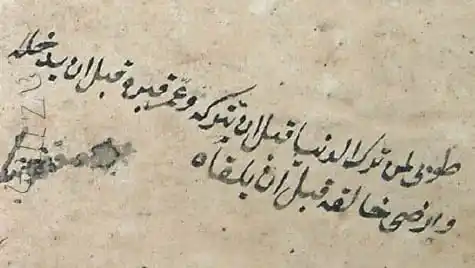 طوبى لمن ترك الدنيا قبل ان تتركه وعمر قبره قبل ان يدخله
وارضى خالقه قبل ان يلقاه